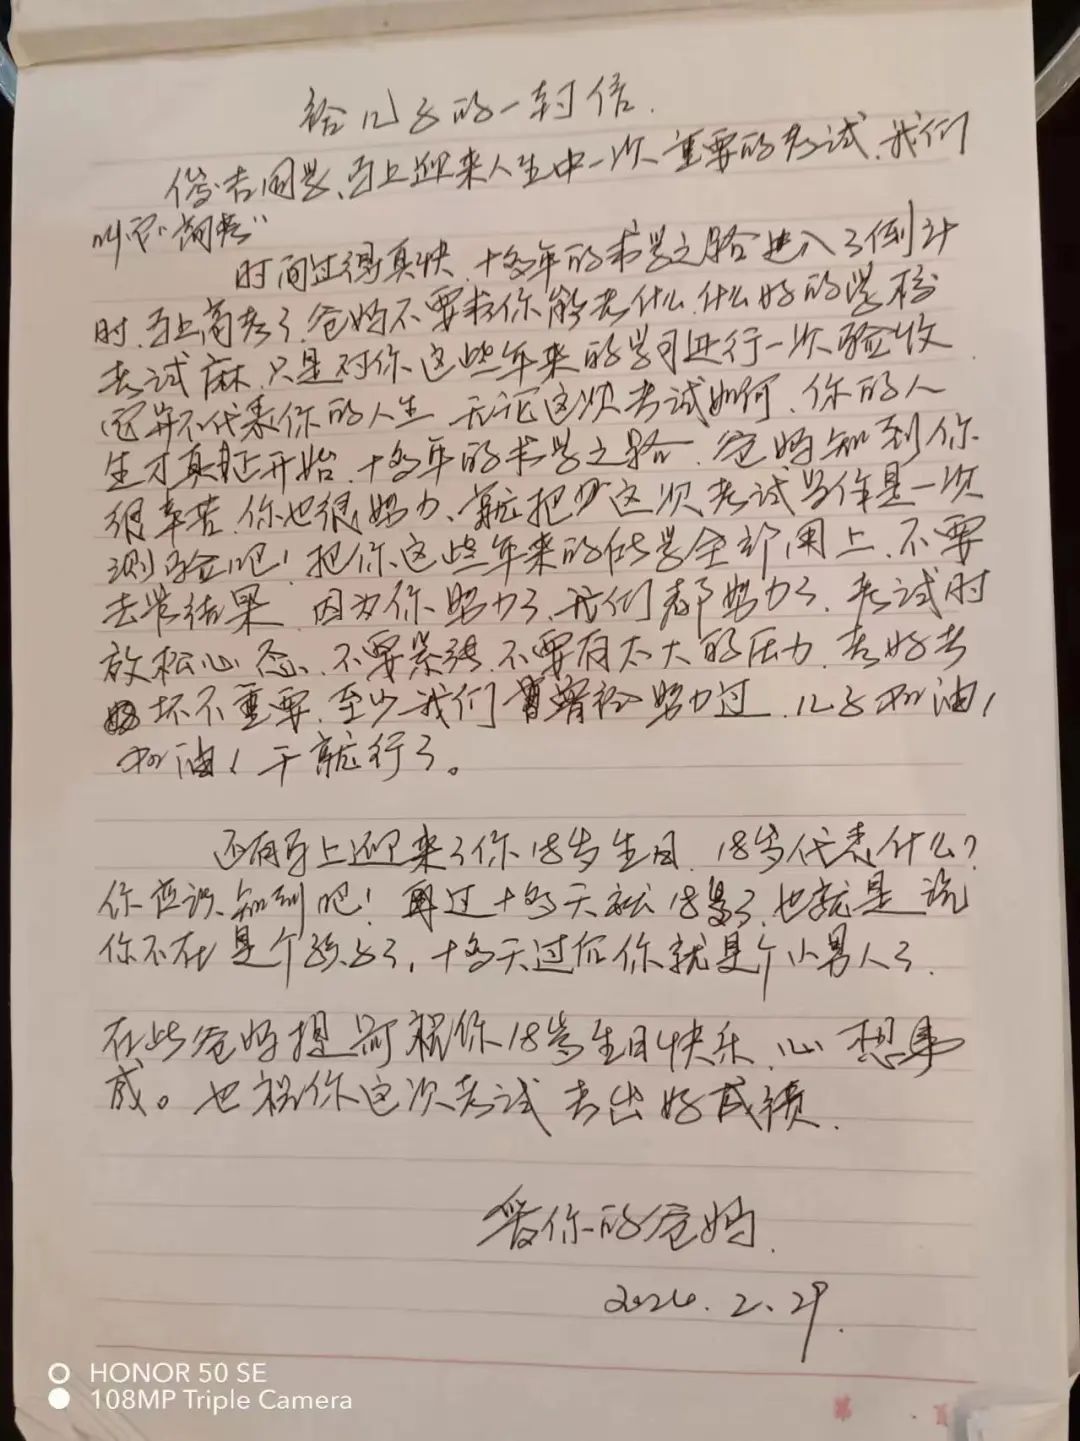 给儿子的一封信.
俊杰同学、马上迎来人生中一次重要的考试.我们
叫它“高考”
时间过得真快.十多年的求学之路进入了倒计
时.马上高考了.爸妈不要求你能考什么.什么好的学校
考试麻.只是对你这些年来的学习进行一次验收
它并不代表你的人生 无论这次考试如何.你的人
生才真正开始.十多年的求学之路.爸妈知到你
很辛苦.你也很努力、就把这次考试当作是一次
测验吧!把你这些年来的所学全部用上.不要
去学结果 因为你努力了.我们都努力了.考试时
放松心态、不要紧张.不要有太大的压力.考好考
坏不重要.至少我们曾经努力过.儿子加油!
加油!干就行了。
还有马上迎来了你18岁生日.18岁代表什么?
你应该知到吧!再过十多天就18岁了.也就是说
你不在是个孩子了,十多天过后你就是个小男人了.
在此爸妈提前祝你18岁生日快乐.心想事
成。也祝你这次考试考出好成绩.
爱你的爸妈.
2024.2.29.
HONOR 50 SE
108MP Triple Camera
第 页